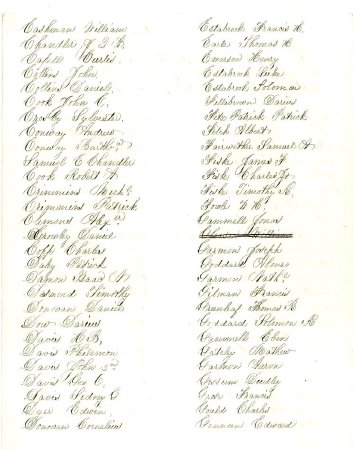 Eashman William
Chandler N D B
Capell Curtis
Collins John
Collins Daniel
Cook John C.
Crosby Sylvester
Conway Andrew
Conway Barth.
Samuel E Chandler
Cook Robert A
Crimmins Mich.
Crimmens Patrick
Clemons
Crowley Daniel
Copp Charles
Daly Patrick
Damon Isaac N
Desmond Timothy
Donovan Daniel
Dow Darius
Davis H B,
Davis Philemon
Davis John 3rd
Davis Geo E.
Davis Sidney G
Dyer Edwin
Donovan Cornelius
Estabrook Francis H.
Earle Thomas H
Emerson Henry
Estabrook Luke
Estabrook Solomon
Fillibrown Darius
Fitz Patrick Patrick
Fitch Albert
Fairweather Samuel A
Fiske James F
Fisk Charles
Fiske Timothy H.
Poole H H.
Gammell Jonas
Garmon Joseph
Goddard Alonzo
Garmon Nath.
Gilman Francis
Greenleaf Thomas R
Goddard Solomon R
Gammell Eben
Gateley Mathew
Garmon Aaron
Dudley
Gross Francis
Gould Charles
Grennan Edward